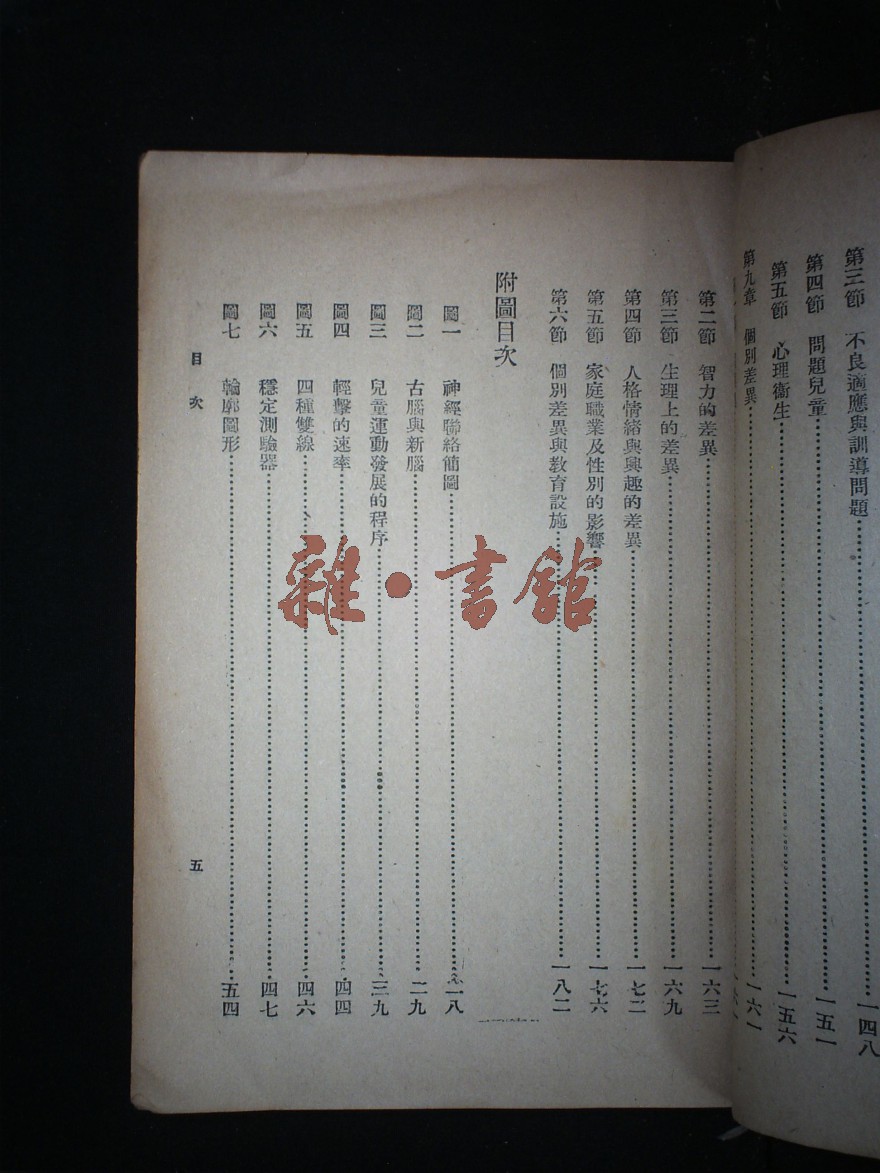 第三節 不良適應與訓導問題⋯⋯一四八
第四節 問題兒童⋯⋯一五一
第五節 心理衞生⋯⋯一五六
第九章 個別差異⋯⋯一六一
第二節 智力的差異⋯⋯一六三
第三節 生理上的差異⋯⋯一六九
第四節 人格情緒與興趣的差異⋯⋯一七二
第五節 家庭職業及性別的影響⋯⋯一七六
第六節 個別差異與教育設施⋯⋯一八二
附圖目次
圖一 神經聯絡簡圖⋯⋯一八
圖二 古腦與新腦⋯⋯二九
圖三 兒童運動發展的程序⋯⋯三九
圖四 輕擊的速率⋯⋯四四
圖五 四種雙線⋯⋯四六
圖六 穩定測驗器⋯⋯四七
圖七 輪廓圖形⋯⋯五四
目次 五
雜·書館